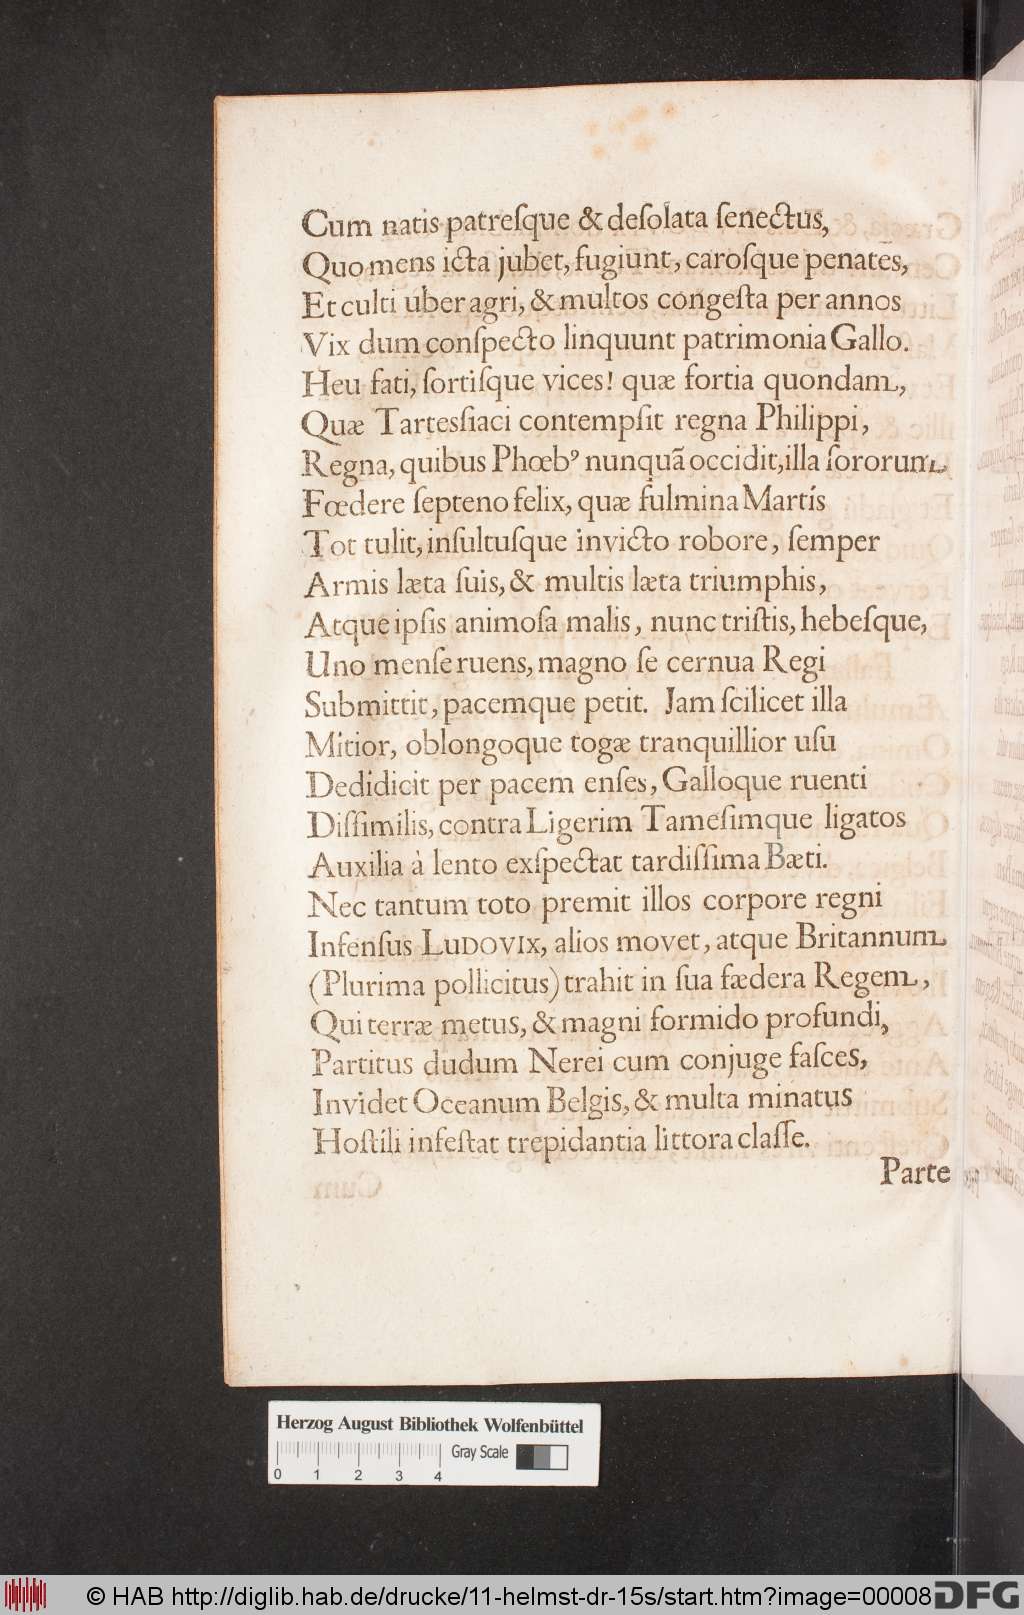 Cum natis patreſque & deſolata ſenectus,
Quo mens icta jubet, fugiunt, caroſque penates,
Et culti uber agri, & multos congeſta per annos
Vix dum conſpecto linquunt patrimonia Gallo.
Heu fati, ſortiſque vices! quæ fortia quondam,
Quæ Tartesſiaci contempſit regna Philippi,
Regna, quibus Phœbꝰ nunquã occidit, illa ſororum
Fœdere ſepteno felix, quæ fulmina Martis
Tot tulit, inſultuſque invicto robore, ſemper
Armis læta ſuis, & multis læta triumphis,
Atque ipſis animoſa malis, nunc triſtis, hebeſque,
Uno menſe ruens, magno ſe cernua Regi
Submittit, pacemque petit. Jam ſcilicet illa
Mitior, oblongoque togæ tranquillior uſu
Dedidicit per pacem enſes, Galloque ruenti
Diſſimilis, contra Ligerim Tameſimque ligatos
Auxilia à lento exſpectat tardiſſima Bæti.
Nec tantum toto premit illos corpore regni
Infenſus LUDOVIX, alios movet, atque Britannum
(Plurima pollicitus) trahit in ſua fædera Regem,
Qui terræ metus, & magni formido profundi,
Partitus dudum Nerei cum conjuge faſces,
Invidet Oceanum Belgis, & multa minatus
Hoſtili infeſtat trepidantia littora claſſe.
Parte
Herzog August Bibliothek Wolfenbüttel
Gray Scale
0 1 2 3 4
© HAB http://diglib.hab.de/drucke/11-helmst-dr-15s/start.htm?image=00008
DFG